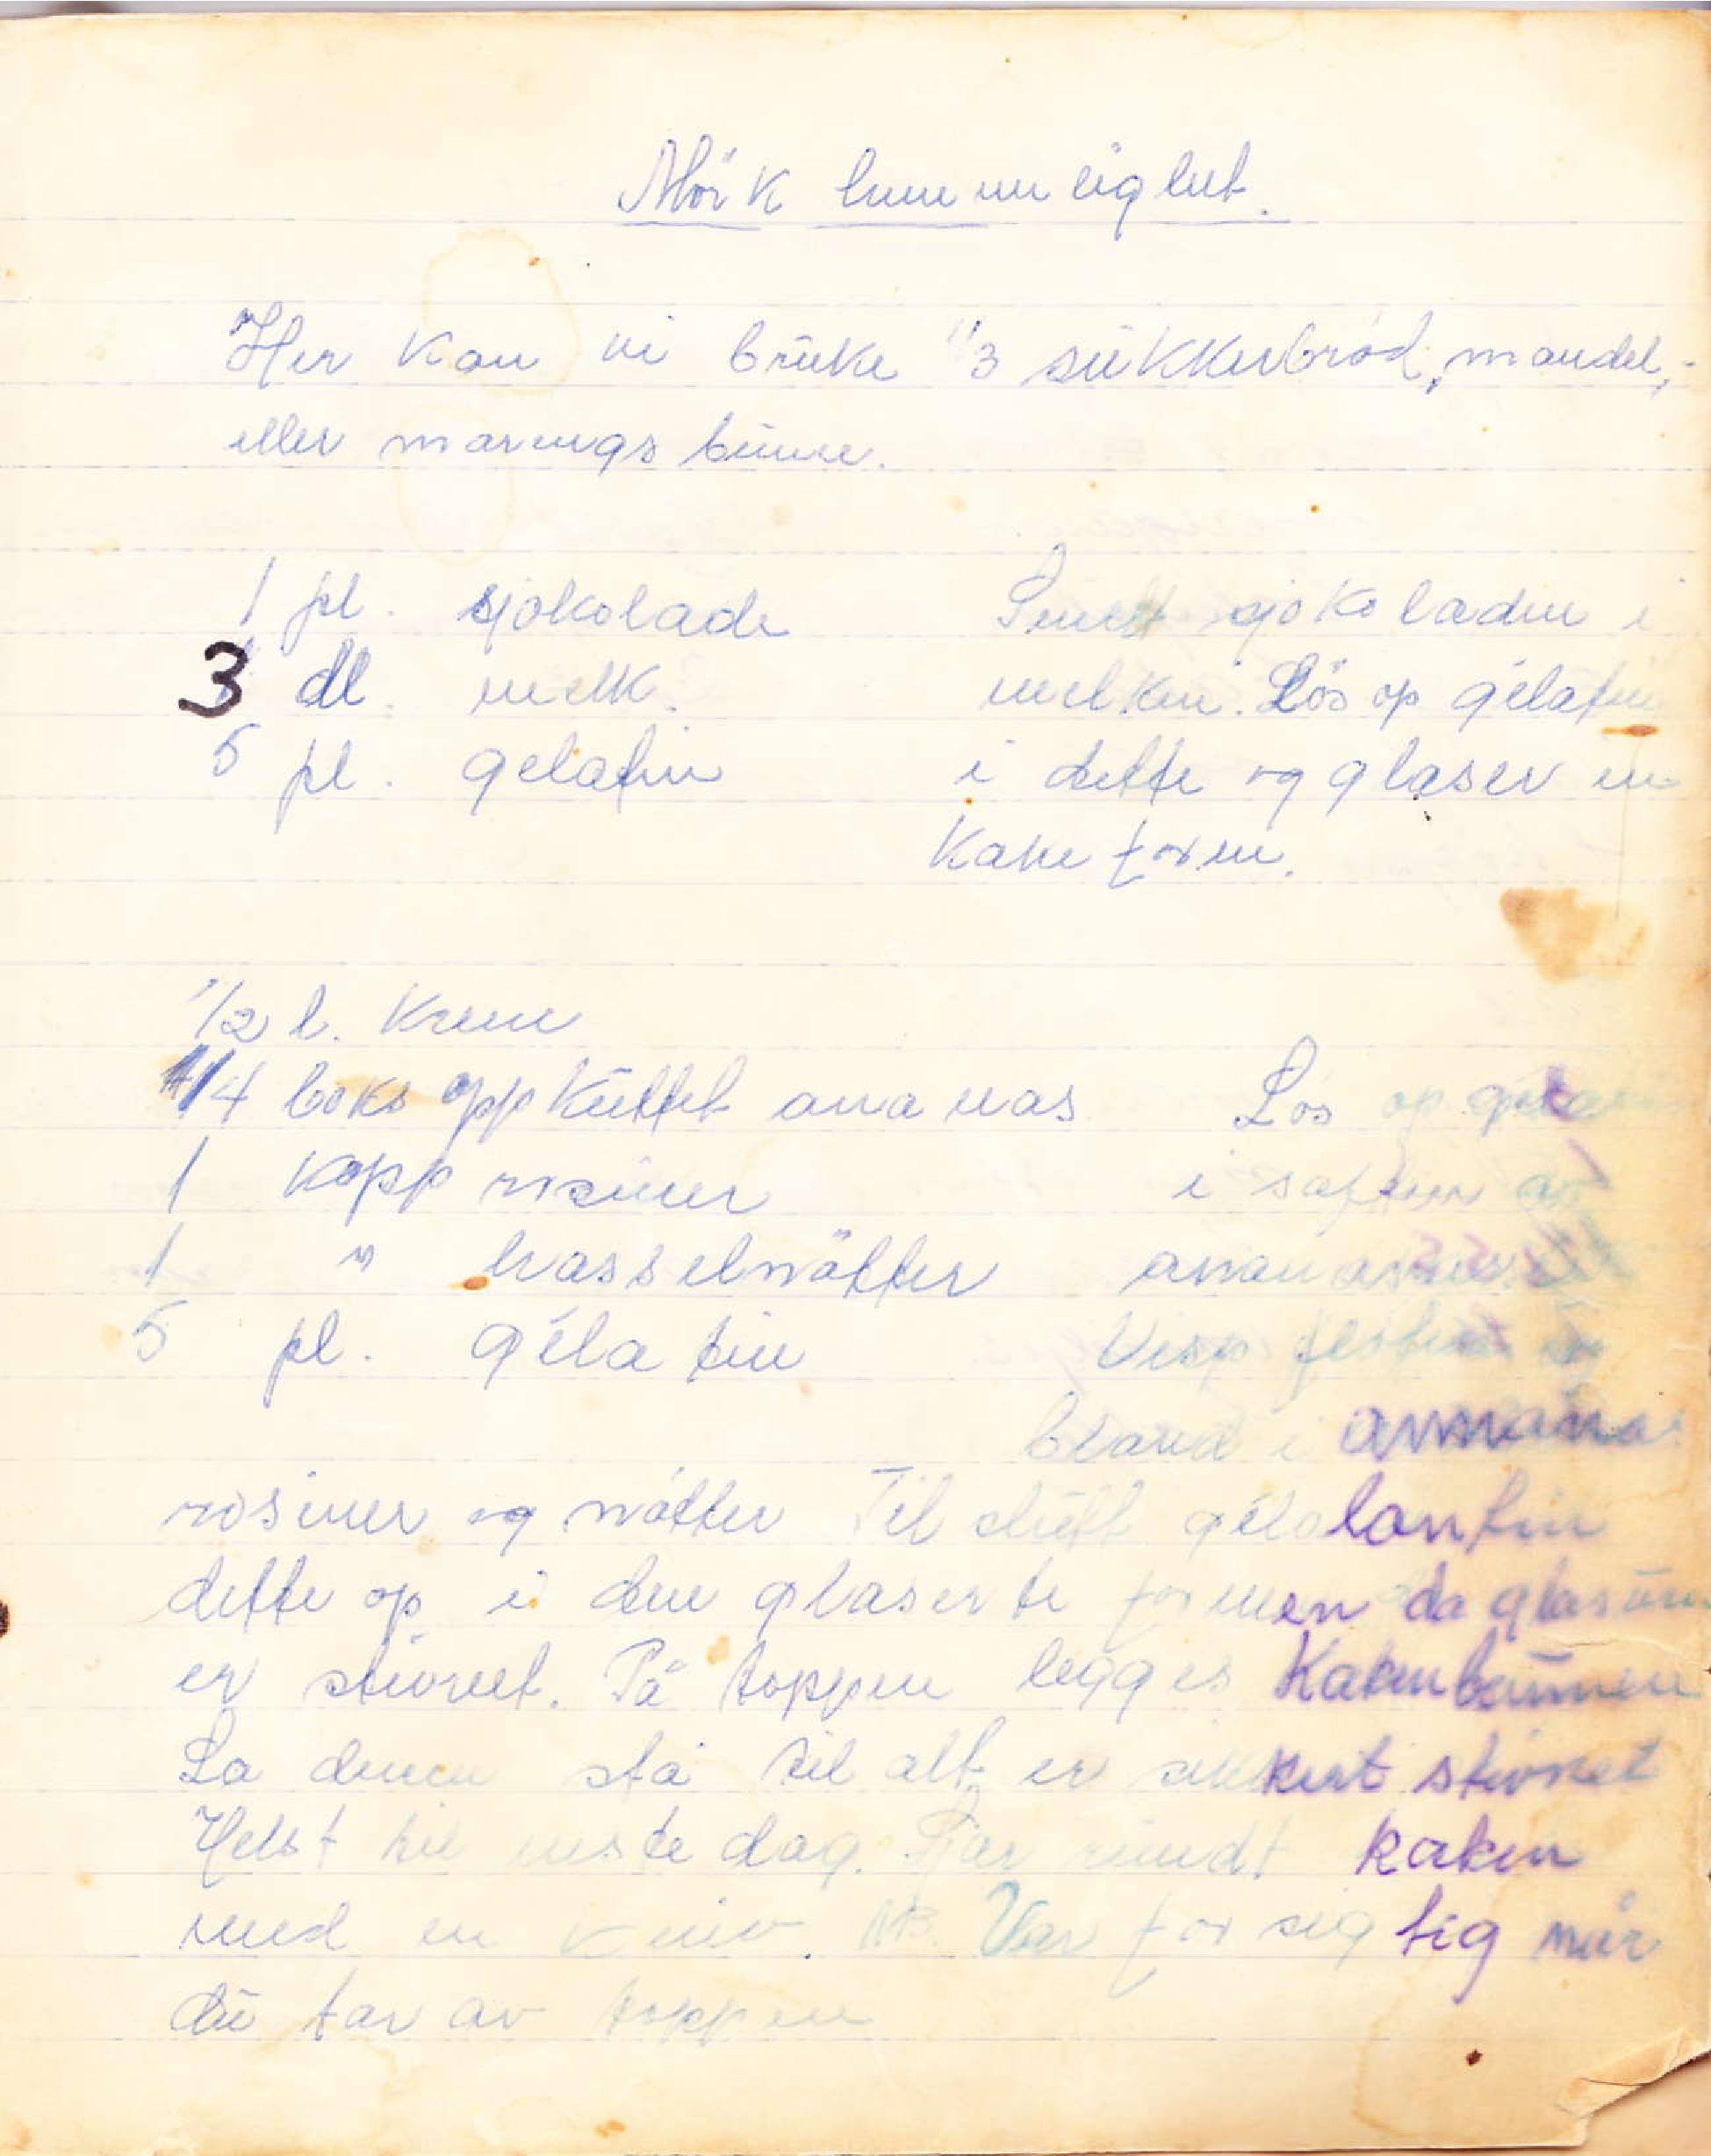 Mörk hemmelighet.
Her kan vi brüke 1/3 sükkerbröd, mandel,-
eller marengs bünne.
1 pl. sjokolade
3 dl. melk.
5 pl. gelatin
Smelt sjokoladen i
melken. Lös op gélatin
i dette og glaser en
Kake form.
1/2 l. Krem
1/4 boks oppküttet ananas
1 kopp rosiner
1 " hasselnötter
5 pl. gélatin
Lös op
i saften av
ananassen.
Visp fløten og
bland i
rosiner og nötter Til slütt
dette op i den glaserte formen da glasüren
er stivnet. På toppen legges Kakenbünnen
La denne stå til alt er sikkert stivnet
Helst til neste dag. Skjær ründt kaken
med en kniv. NB. Vær forsigtig når
dü tar av toppen